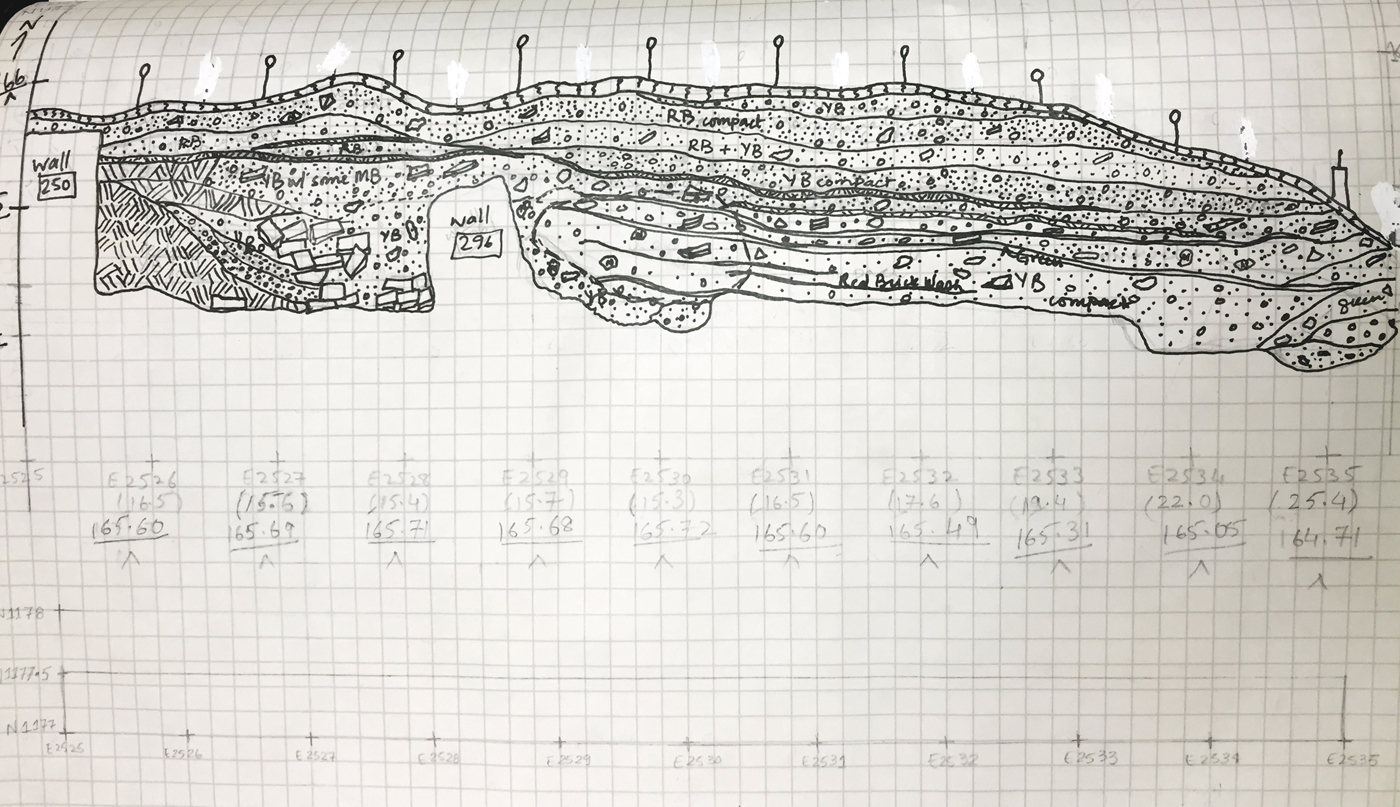 N
66
RB compact
YB
RB
RB
RB + YB
YB compact
YB w/ some MB
wall
250
wall
296
YB
YB
Green
Red Brick Wash
YB
compact
YB
E2526
E2527
E2528
E2529
E2530
E2531
E2532
E2533
E2534
E2535
2525
(16.5)
(15.6)
(15.4)
(15.7)
(15.3)
(16.5)
(17.6)
(19.4)
(22.0)
(25.4)
165.60
165.69
165.71
165.68
165.72
165.60
165.49
165.31
165.05
164.71
N1178
N1177.5
N1177
E2525
E2526
E2527
E2528
E2529
E2530
E2531
E2532
E2533
E2534
E2535